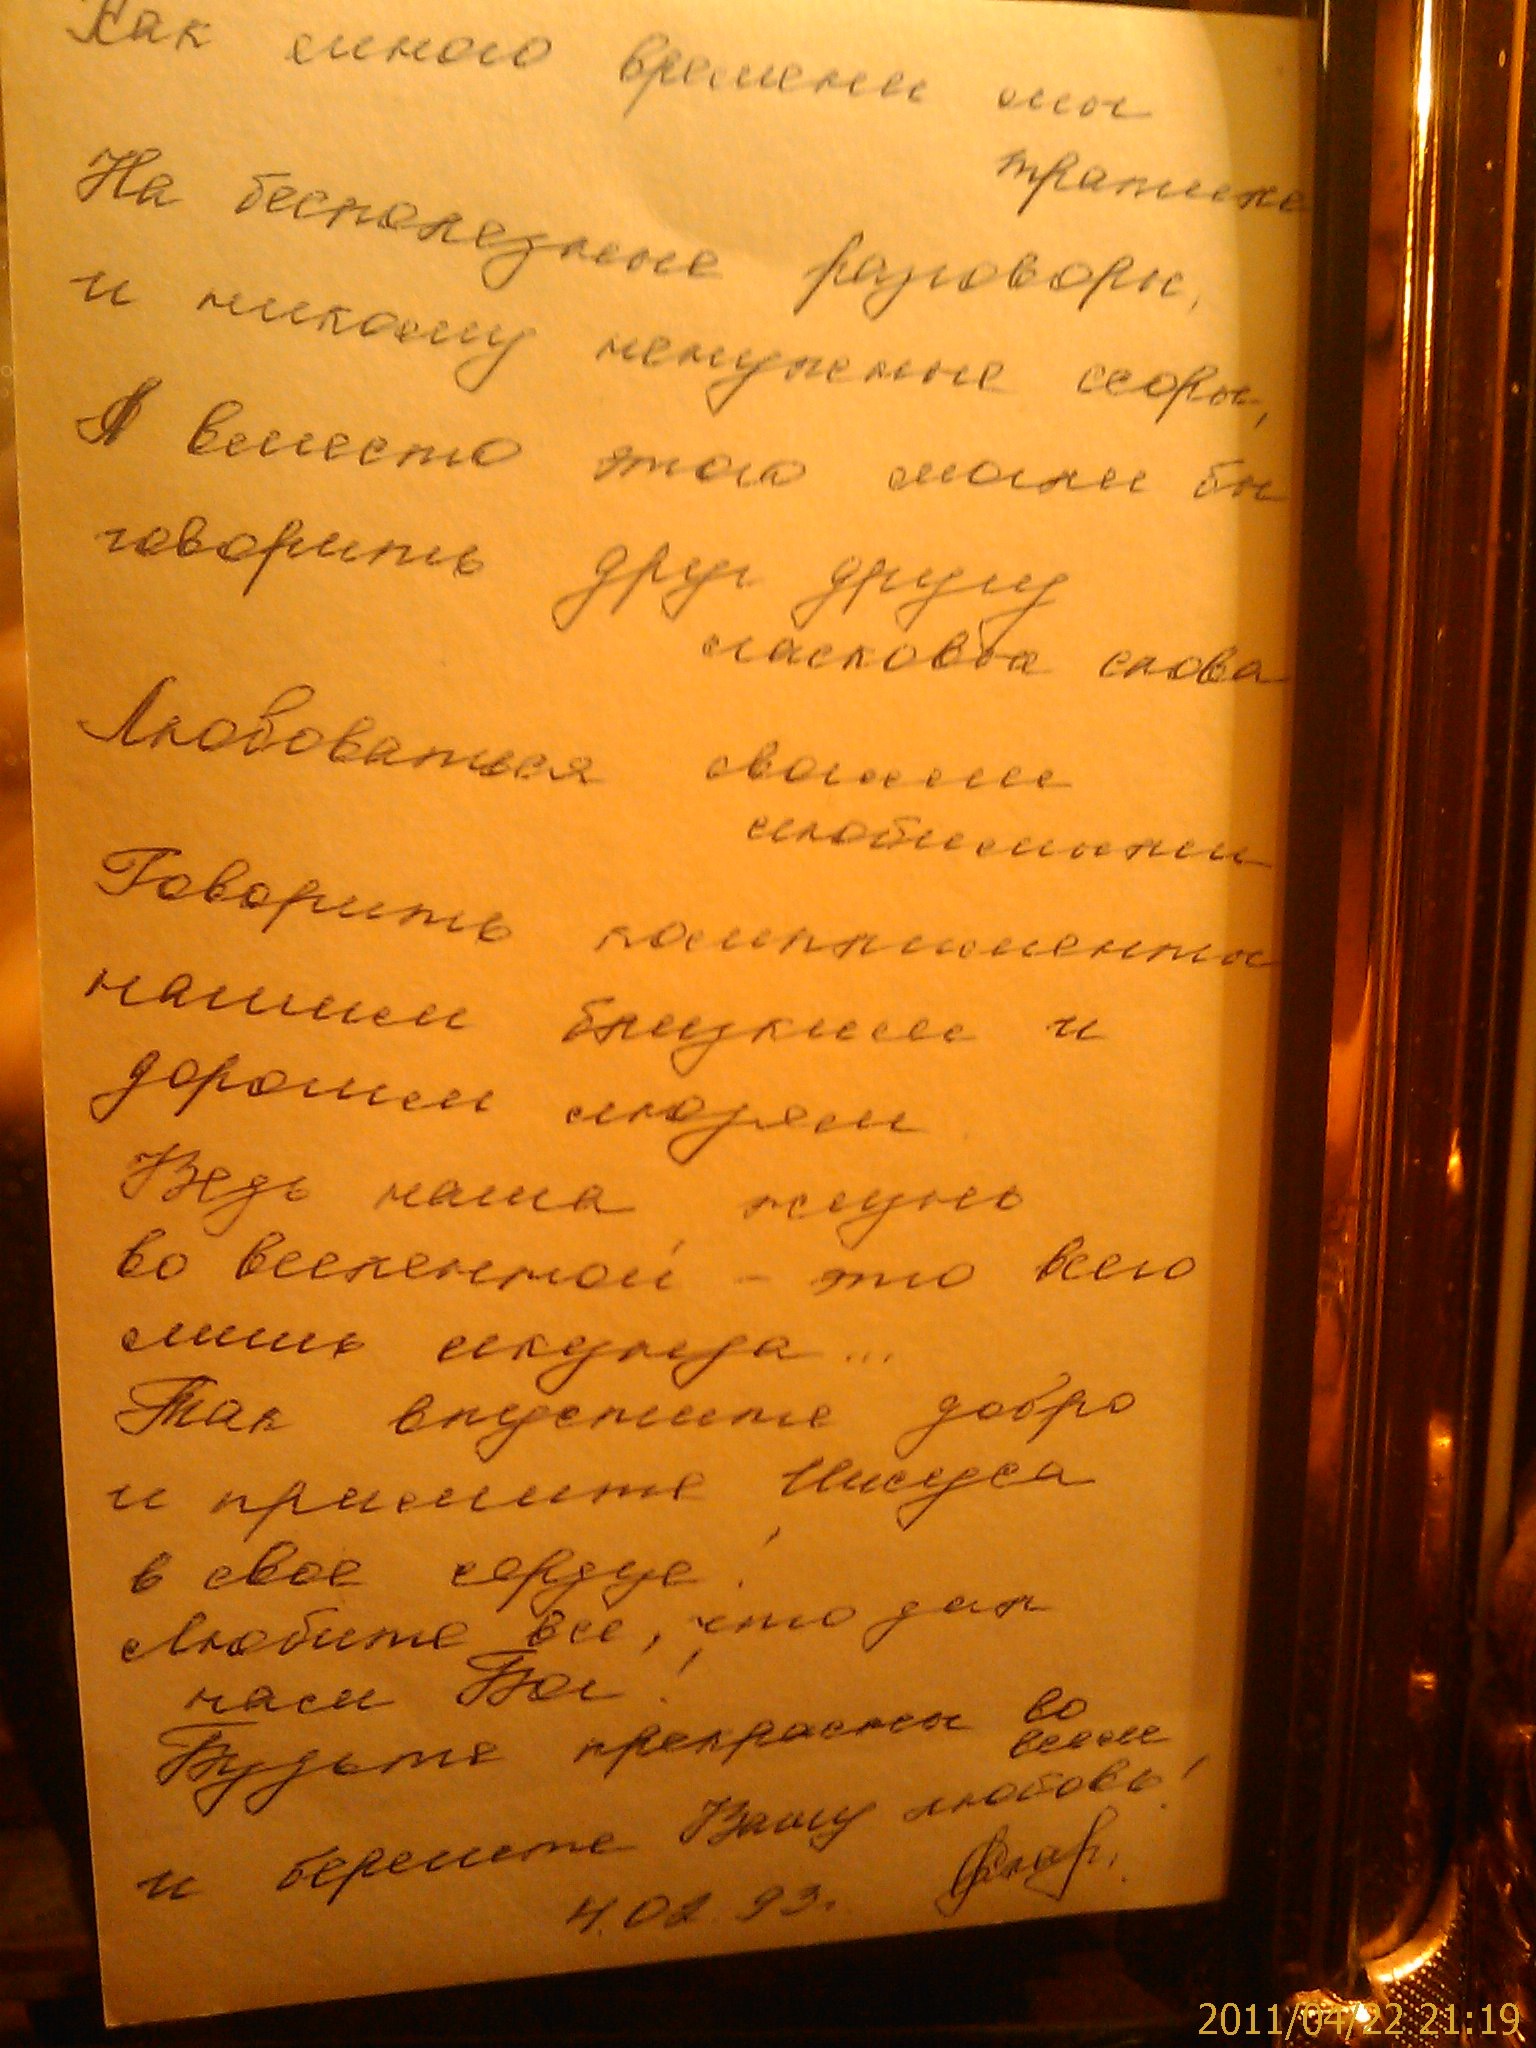 Как много времени мы
тратим
На бесполезные разговоры,
и никому ненужные ссоры,
А вместо этого могли бы
говорить друг другу
слова
Любоваться своими
любимыми
Говорить комплименты
нашим близким и
дорогим людям
Ведь наша жизнь
во вселенной - это всего
лишь секунда...
Так впустите добро
и примите Иисуса
в свое сердце!
Любите все, что дал
нам Бог!
Будьте прекрасны во
всем
и берегите Вашу любовь!
4.02.93.
2011/04/22 21:19